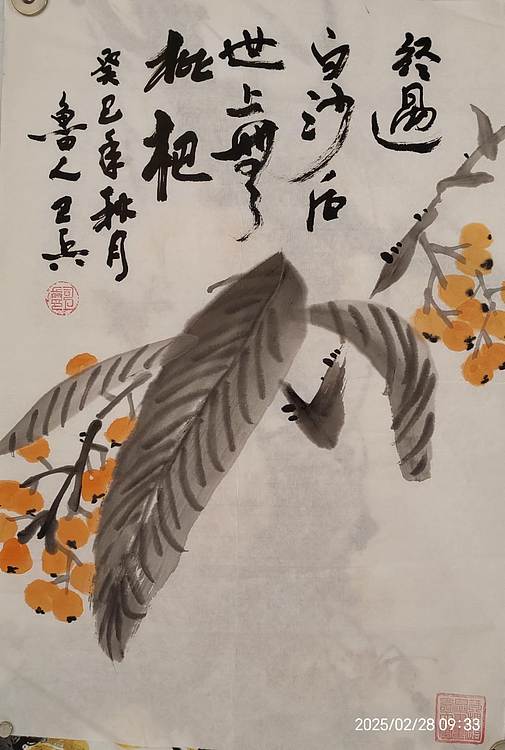 经過
白沙后
世上無
枇杷
癸巳年秋月
魯人卫兵
2025/02/28 09:33